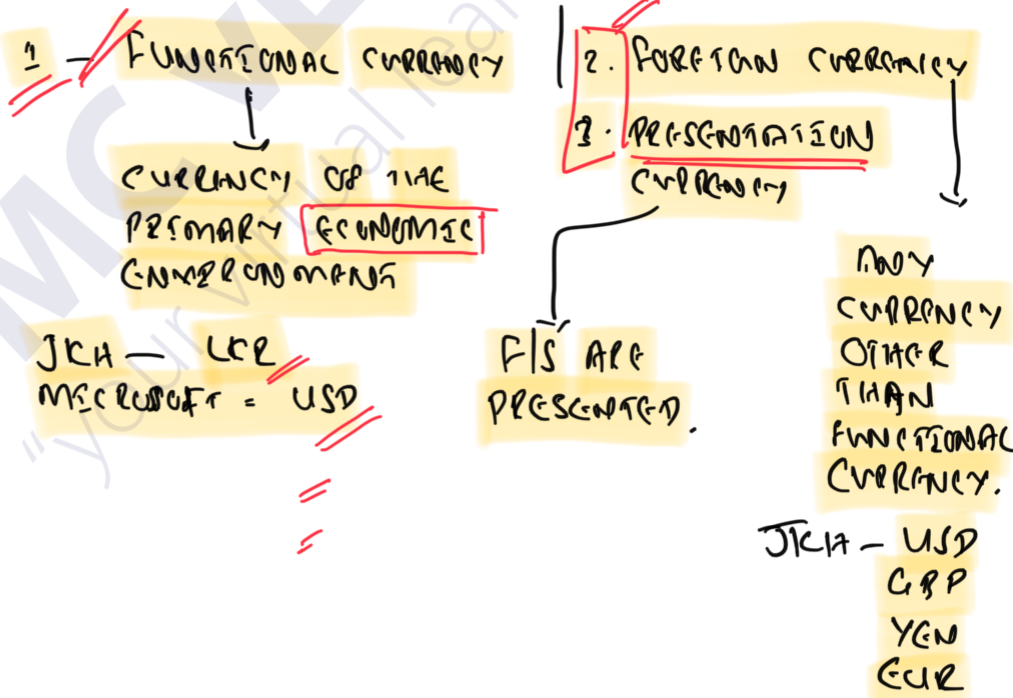 1 - FUNCTIONAL CURRENCY
CURRENCY OF THE
PRIMARY ECONOMIC
ENVIRONMENT
JKH — LKR
MICROSOFT = USD
2. FOREIGN CURRENCY
3. PRESENTATION
CURRENCY
F/S ARE
PRESENTED.
ANY
CURRENCY
OTHER
THAN
FUNCTIONAL
CURRENCY.
JKH — USD
GBP
YEN
EUR
MC
"your virtual lea